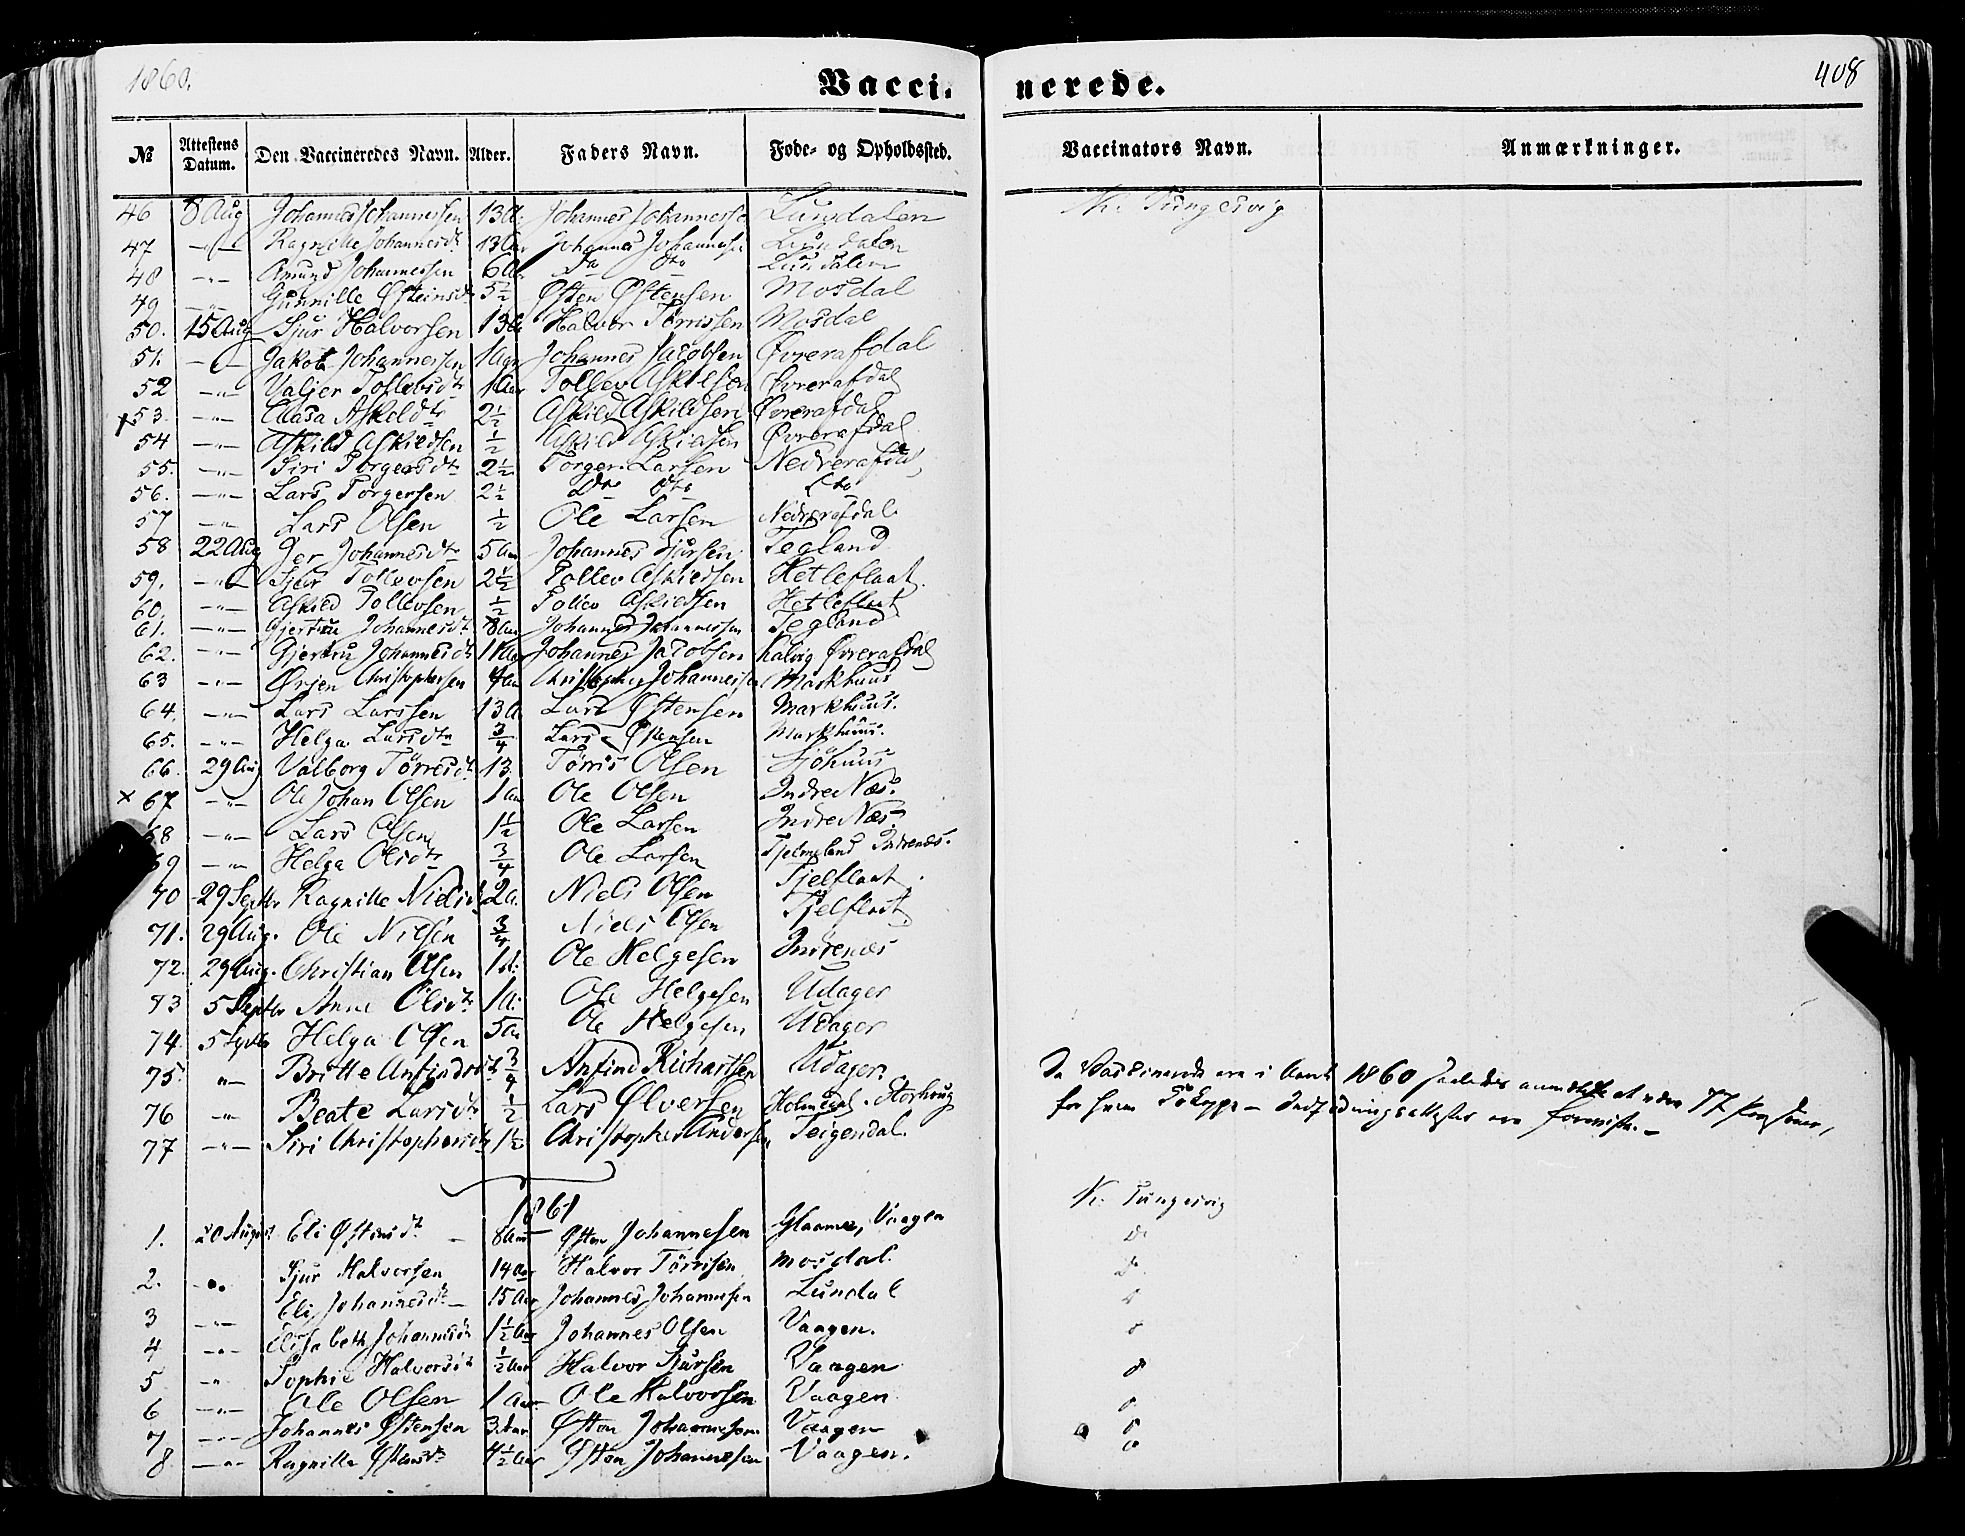 1860. Vaccinerede. 408
№ Attestens Datum. Den Vaccineredes Navn. Alder. Faders Navn. Føde- og Opholdssted. Vaccinators Navn. Anmærkninger.
46 8 Aug Johannes Johannessen 13 A. Johannes Johannesse Lundalen N. Tungesvig
47 -"- Ragnille Johannesdtr 13 Aar Johannes Johannesse Lundalen
48 -"- Amund Johannessen 6 A Do Dto Lundalen
49 -"- Gunnille Østeinsdtr 5½ Østen Østensen Mosdal
50. 15 Aug Sjur Halvorsen 13 A Halvor Tørrissen Mosdal
51. -"- Jakob Johannessen 1 Aar Johannes Jacobsen Øvrerafdal
52 -"- Valjer Tollevsdtr 1 Aar Tollev Askilsen Øvrerafdal
x 53. -"- Clasa Askeldtr 2½ Askild Askildsen Øvrerafdal
54 -"- Askild Askildsen ½ Askild Askildsen Øvrerafdal
55. -"- Siri Torgersdtr 2½ Torger Larsen Nedrerafdal
56. -"- Lars Torgersen 2½ Dto Dto Dto
57 -"- Lars Olsen ½ Ole Larsen Nedrerafdal
58 22 Aug Johannesdtr 5 Aar Johannes Sjursen Tegland
59. -"- Sjur Tollevsen 2½ Tollev Askildsen Hetleflaat.
60. -"- Askild Tollevsen ½ Tollev Askildsen Hetleflaat
61. -"- Gjertru Johannesdtr 8 Aar Johannes Johannessen Tegland
62. -"- Gjertru Johannesdtr 11 Aar Johannes Jacobsen Kalvig Øvrerafdal
63 -"- Ørjen Christophersen 4 Aar Christopher Johannessen Markhuus
64. -"- Lars Larssen 13 A Lars Østensen Markhuus.
65. -"- Helga Larsdtr ¾ Lars Østensen Markhuus.
66. 29 Aug Valborg Tørresdtr 13. Tørris Olsen Sjöhuus
x 67 -"- Ole Johan Olsen 1 Aar Ole Olsen Indre Næs.
68 -"- Lars Olsen 1½ Ole Larsen Indre Næs
69 -"- Helga Olsdtr ¾ Ole Larsen Tjelmeland Indrenæs.
70 29 Septbr Ragnille Nielsdtr 2 A. Niels Olsen Tjelflaat.
71. 29 Aug. Ole Nilsen ¾ Niels Olsen Tjelflaat
72. 29 Aug. Christian Olsen 1 A. Ole Helgesen Indrenæs
73 5 Septbr Anne Olsdtr 1 A. Ole Helgesen Udager
74. 5 Septbr Helga Olsen 5 Aa Ole Helgesen Udager
75. "- Britte Anfindsdtr ¾ Anfind Richartsen Udager.
76 -"- Beate Larsdtr ½ Lars Ølversen Holmedal. Storhaug
77 -"- Siri Christophersdtr 1½ Christopher Andersen Teigendal.
De Vaccinerede ere i Aaret 1860 saaledes at være 77 Personer,
for hvem ere
1861 N. Tungesvig
1. 20 August Eli Østensdtr 8 Aar Østen Johannesen Glaamen, Vaagen D.
2. -"- Sjur Halvorsen 14 Aar Halvor Tørrisen Mosdal. D.
3 -"- Eli Johannesdtr 15 Aar Johannes Johannesen Lundal
4 -"- Elisabeth Johannesdtr 1½ Aar Johannes Olsen Vaagen.
5 -"- Sophie Halvorsdtr ½ Aar Halvor Sjursen Vaagen
6 -"- Ole Olsen 1 Aar Ole Halvorsen Vaagen
7 -"- Johannes Østensen 3 Aar Østen Johannesen Vaagen
8. -"- Ragnilla Østensdtr 4½ Aar Østen Johannesen Vaagen.